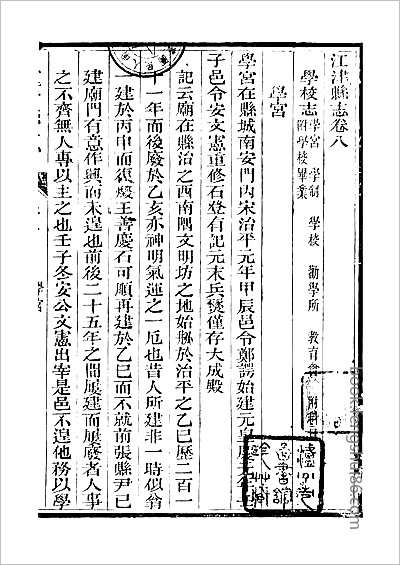 江津縣志卷八
學校志 學宮 學制 學校 勸學所 教育會
附學校畢業
學宮
學宮在縣城南安門內宋治平元年甲辰邑令鄭諤始建元皇慶元年壬
子邑令安文憲重修石癹有記元末兵燹僅存大成殿
記云廟在縣治之西南隅文明坊之地始刱於治平之乙巳歷二百一
十一年而後廢於乙亥亦神明氣運之一厄也昔人所建非一時似翁
一建於丙申而復燬王善慶石可順再建於乙巳而不就前張縣尹已
建廟門有意作興而未遑也前後二十五年之間屢建而屢廢者人事
之不齊無人專以主之也壬子冬安公文憲出宰是邑不遑他務以學
學宮